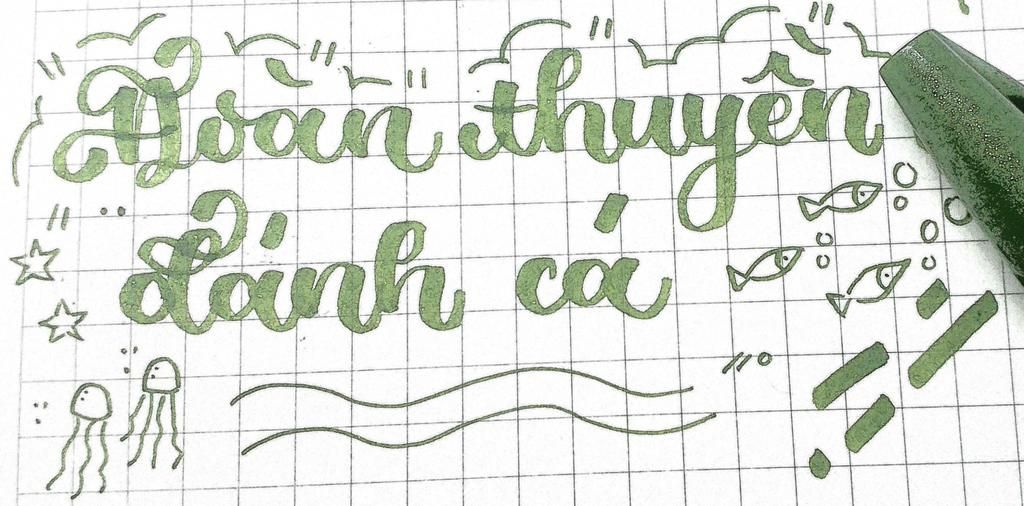 Đoàn thuyền
đánh cá